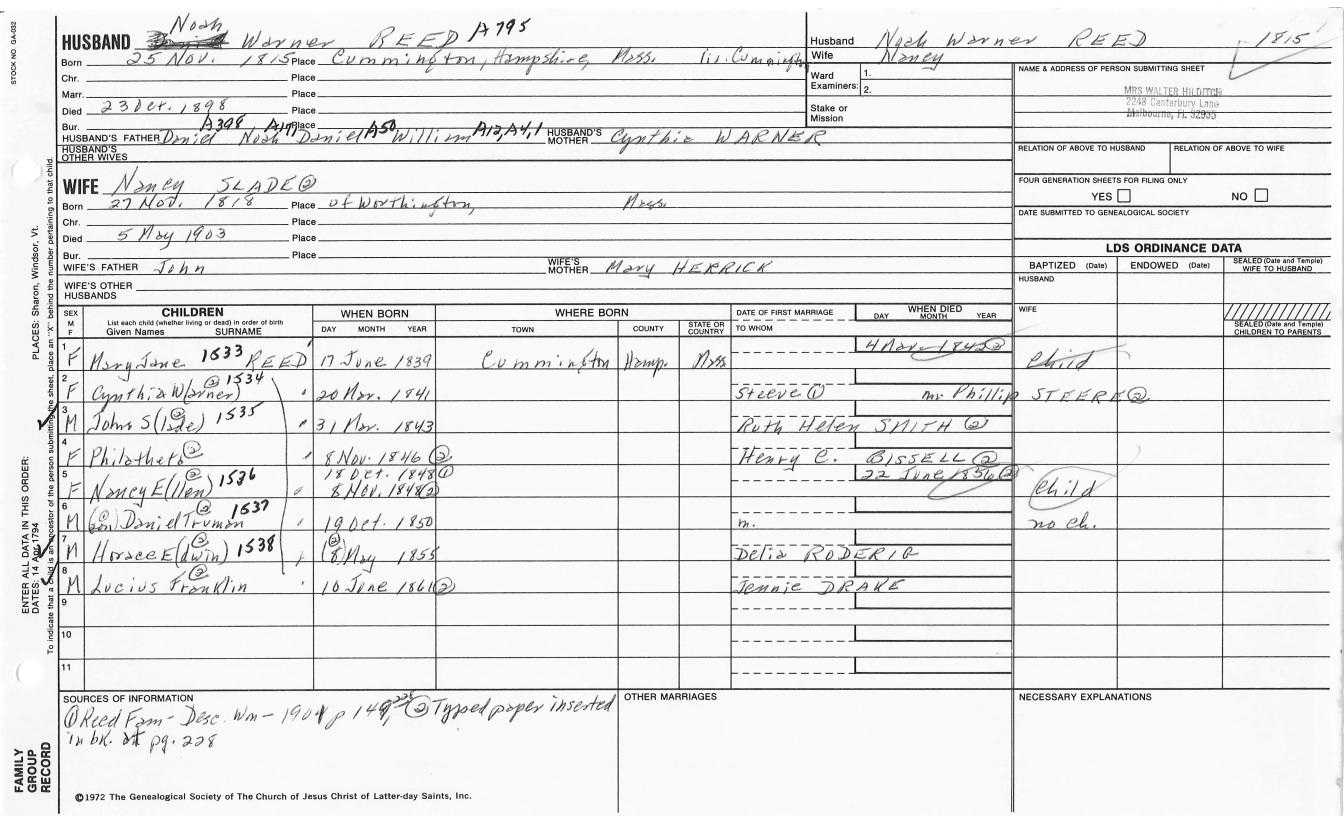 STOCK NO. GA-032
HUSBAND Noah Warner REED A795
Born 25 Nov. 1815 Place Cummington, Hampshire, Mass. lis. Cummington
Chr. Place
Marr. Place
Died 23 Dec. 1898 Place
Bur. Place
A398, A171 A50 A12, A4, 1
HUSBAND'S FATHER Daniel Noah Daniel William HUSBAND'S MOTHER Cynthia WARNER
HUSBAND'S OTHER WIVES
Husband Noah Warner REED 1815
Wife Nancy
Ward Examiners: 1.
2.
Stake or Mission
NAME & ADDRESS OF PERSON SUBMITTING SHEET
MRS WALTER HILDITCH
2248 Canterbury Lane
Melbourne, Fl. 32935
RELATION OF ABOVE TO HUSBAND RELATION OF ABOVE TO WIFE
FOUR GENERATION SHEETS FOR FILING ONLY
YES NO
DATE SUBMITTED TO GENEALOGICAL SOCIETY
WIFE Nancy SLADE ②
Born 27 Nov. 1818 Place of Worthington, Mass.
Chr. Place
Died 5 May 1903 Place
Bur. Place
WIFE'S FATHER John WIFE'S MOTHER Mary HERRICK
WIFE'S OTHER HUSBANDS
LDS ORDINANCE DATA
BAPTIZED (Date) ENDOWED (Date) SEALED (Date and Temple) WIFE TO HUSBAND
HUSBAND
WIFE
SEALED (Date and Temple) CHILDREN TO PARENTS
SEX M F
CHILDREN
List each child (whether living or dead) in order of birth
Given Names SURNAME
WHEN BORN
DAY MONTH YEAR
WHERE BORN
TOWN COUNTY STATE OR COUNTRY
DATE OF FIRST MARRIAGE
TO WHOM
WHEN DIED
DAY MONTH YEAR
1 F Mary Jane 1533 REED 17 June 1839 Cummington Hamp. Mass 4 Mar. 1842 ② Child
2 F Cynthia W(arner) ② 1534 " 20 Mar. 1841 Steeve ① mr. Phillip STEERE ②
3 M John S(lade) ② 1535 " 31 Mar. 1843 Ruth Helen SMITH ②
4 F Philathera ② " 8 Nov. 1846 ② Henry C. BISSELL ②
5 F Nancy E(llen) ② 1536 " 18 Oct. 1848 ① 8 Nov. 1848 ② 22 June 1856 ② Child
6 M (son) ② Daniel Truman ② 1537 19 Oct. 1850 m. no ch.
7 M Horace E(dwin) ② 1538 " (8) ② May 1855 Delia RODERIG
8 M Lucius Franklin ② " 10 June 1861 ② Jennie DRAKE
9
10
11
SOURCES OF INFORMATION
① Reed Fam - Desc. Wm - 1901 p 149, 228 ② Typed paper inserted
in bk. at pg. 228
OTHER MARRIAGES
NECESSARY EXPLANATIONS
©1972 The Genealogical Society of The Church of Jesus Christ of Latter-day Saints, Inc.
FAMILY GROUP RECORD
ENTER ALL DATA IN THIS ORDER:
DATES: 14 Apr 1794
PLACES: Sharon, Windsor, Vt.
To indicate that a child is an ancestor of the person submitting the sheet, place an "X" behind the number pertaining to that child.